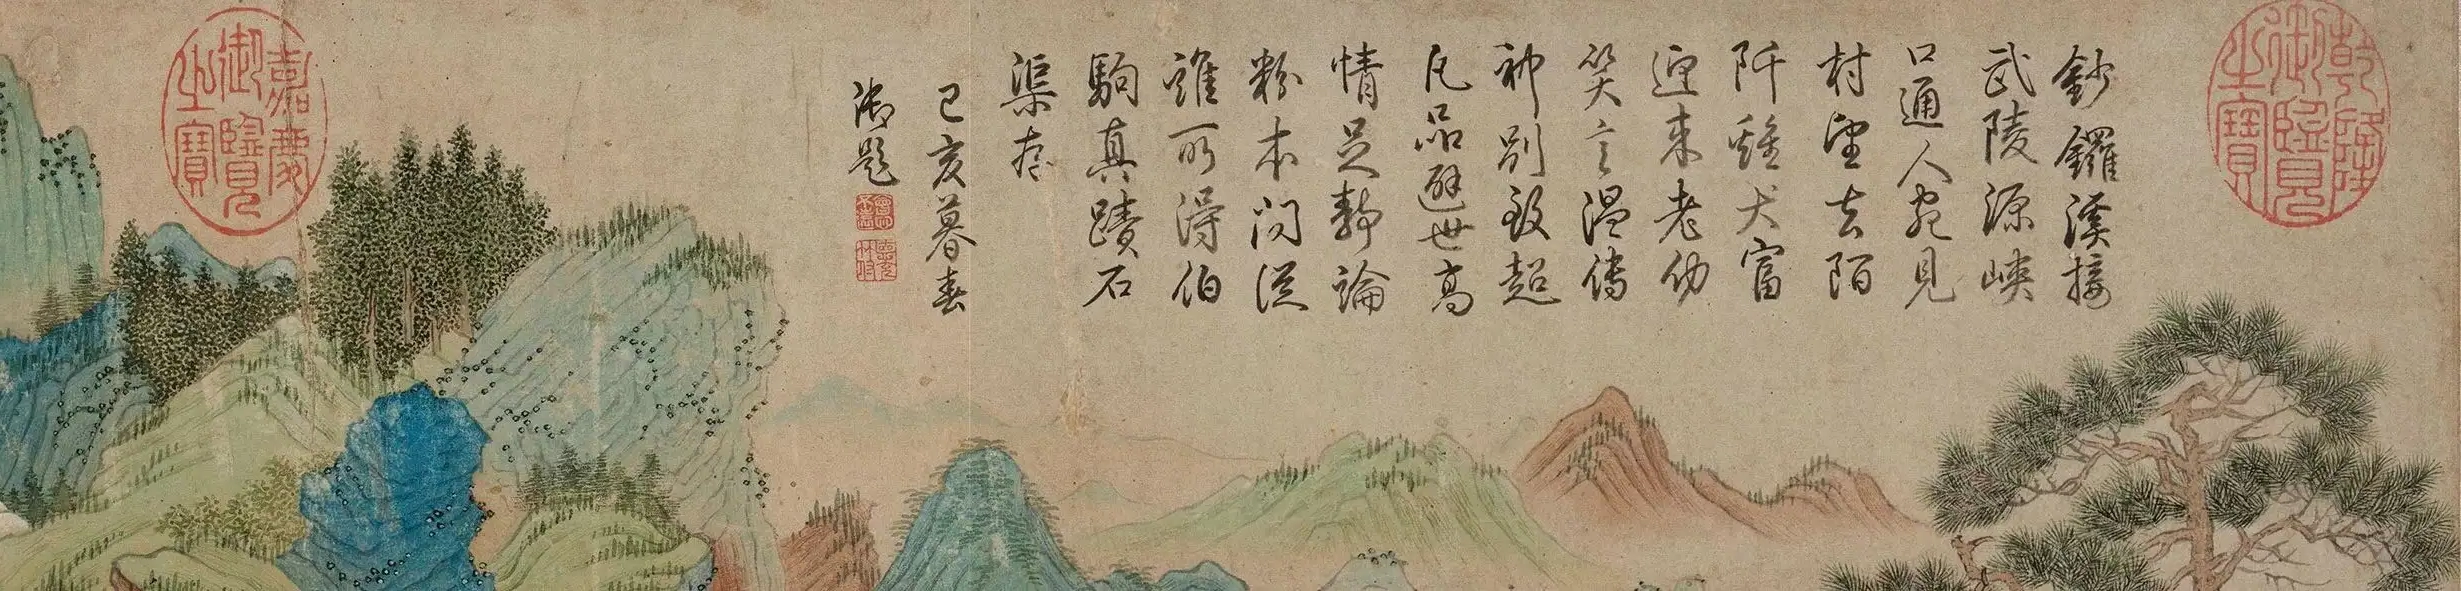 乾隆御覽之寶
鈔鑼溪接
武陵源峽
口通人宛見
村望去陌
阡雞犬富
迎來老幼
笑言溫傳
神別致超
凡品避世高
情足靜論
粉本問從
誰所得伯
駒真蹟石
渠存
己亥暮春
御題
嘉慶御覽之寶